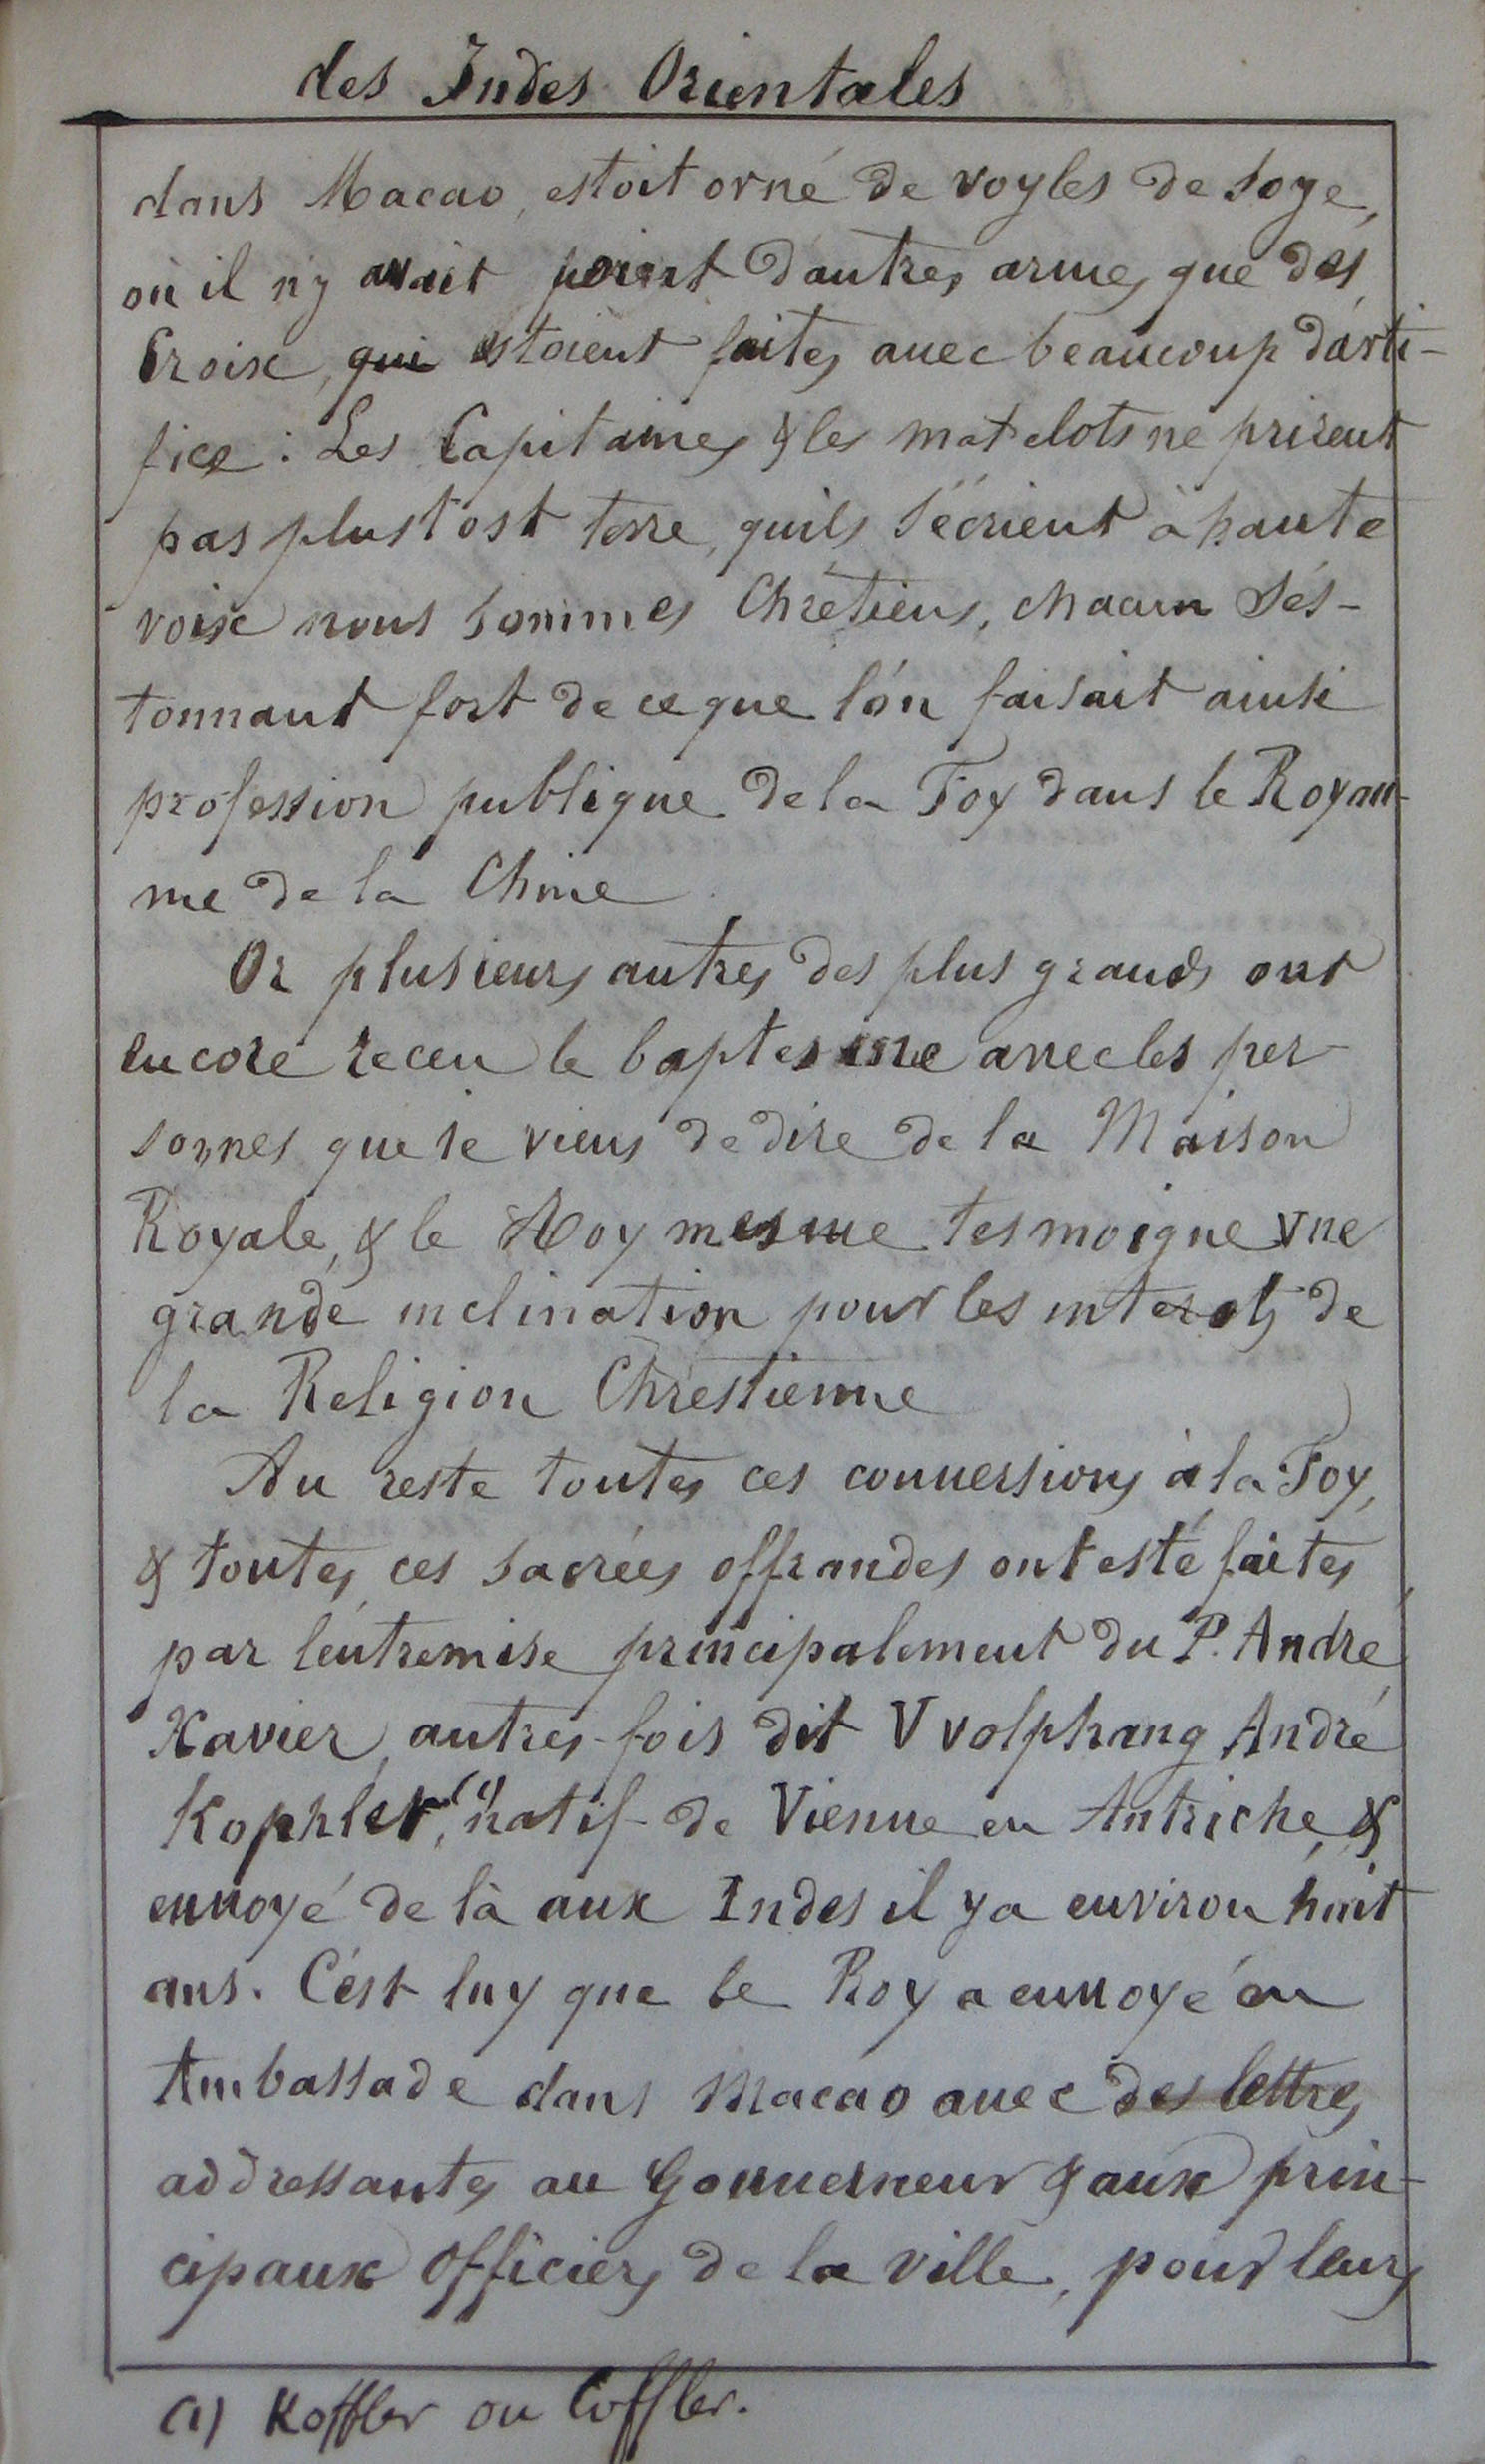 des Indes Orientales
dans Macao, estoit orné de voyles de soye,
où il n'y avait point d'autres armes que des
Croix, qui estoient faites auec beaucoup d'arti-
fice : Les Capitaines & les matelots ne prirent
pas plustost terre, qu'ils s'écrient à haute
voix nous sommes Chrétiens, chacun s'és-
tonnant fort de ce que l'on faisait ainsi
profession publique de la Foy dans le Royau-
me de la Chine
Or plusieurs autres des plus grands ont
encore receu le baptesme avec les per-
sonnes que ie viens de dire de la Maison
Royale, & le Roy mesme tesmoigne vne
grande inclination pour les interets de
la Religion Chrestienne
Au reste toutes ces conuersions à la Foy,
& toutes ces sacrées offrandes ont esté faites
par l'entremise principalement du P. André
Xavier, autres-fois dit Vvolphang André
Kophler,(1) natif de Vienne en Autriche, &
enuoyé de là aux Indes il y a environ huit
ans. C'est luy que le Roy a enuoyé en
Ambassade dans Macao auec des lettres
addressantes au Gouuerneur & aux prin-
cipaux Officiers de la ville, pour leurs
(1) Koffler ou Coffler.